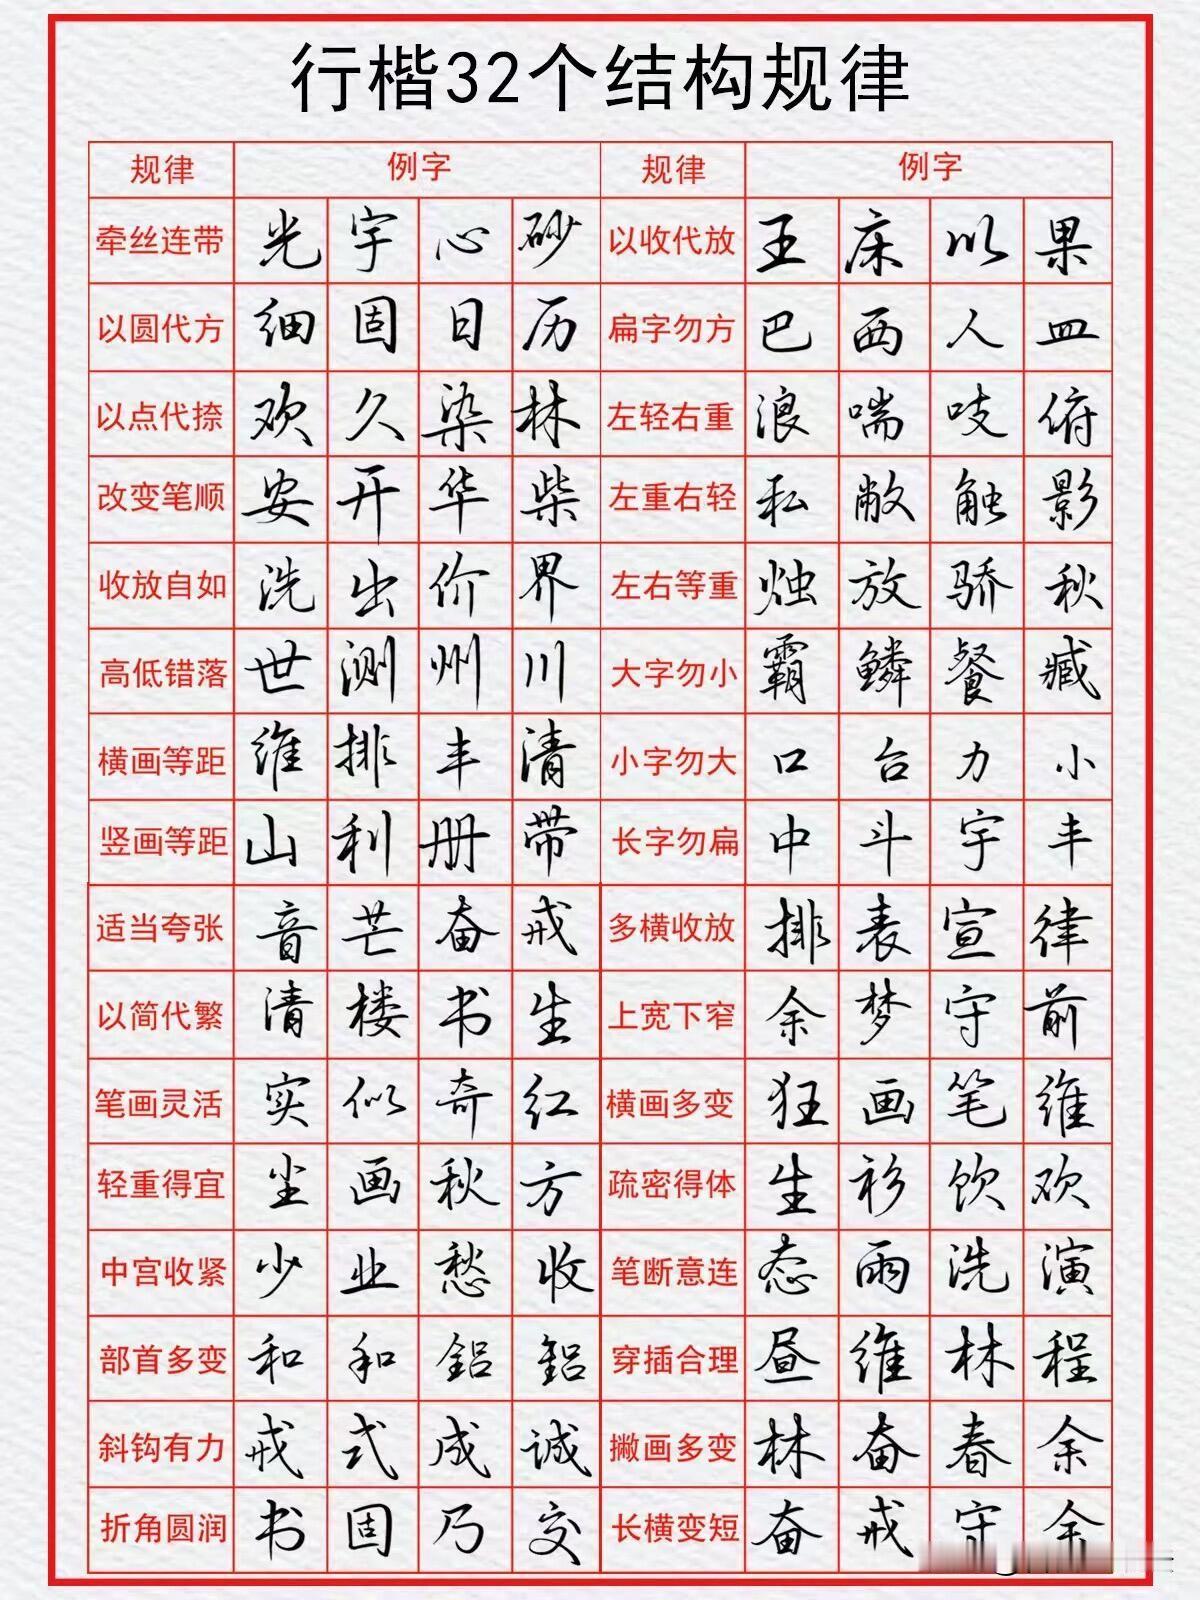 行楷32个结构规律
规律 例字 规律 例字
牵丝连带 光 宇 心 砂 以收代放 王 床 以 果
以圆代方 细 固 日 历 扁字勿方 巴 西 人 皿
以点代捺 欢 久 染 林 左轻右重 浪 喘 吱 俯
改变笔顺 安 开 华 柴 左重右轻 私 敝 触 影
收放自如 洗 出 价 界 左右等重 烛 放 骄 秋
高低错落 世 测 州 川 大字勿小 霸 鳞 餐 臧
横画等距 维 排 丰 清 小字勿大 口 台 力 小
竖画等距 山 利 册 带 长字勿扁 中 斗 宇 丰
适当夸张 音 芒 奋 戒 多横收放 排 表 宣 律
以简代繁 清 楼 书 生 上宽下窄 余 梦 守 前
笔画灵活 实 似 奇 红 横画多变 狂 画 笔 维
轻重得宜 坐 画 秋 方 疏密得体 生 衫 饮 欢
中宫收紧 少 业 愁 收 笔断意连 态 雨 洗 演
部首多变 和 和 鋁 鋁 穿插合理 昼 维 林 程
斜钩有力 戒 式 成 诚 撇画多变 林 奋 春 余
折角圆润 书 固 乃 交 长横变短 奋 戒 守 余